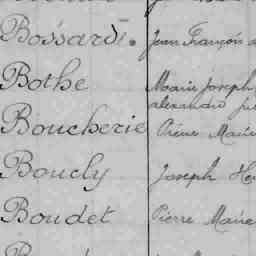 Bossard. Jean François
Bothe Marie Joseph
alexandre
Boucherie Pierre Marie
Boucly Joseph
Boudet Pierre Marie